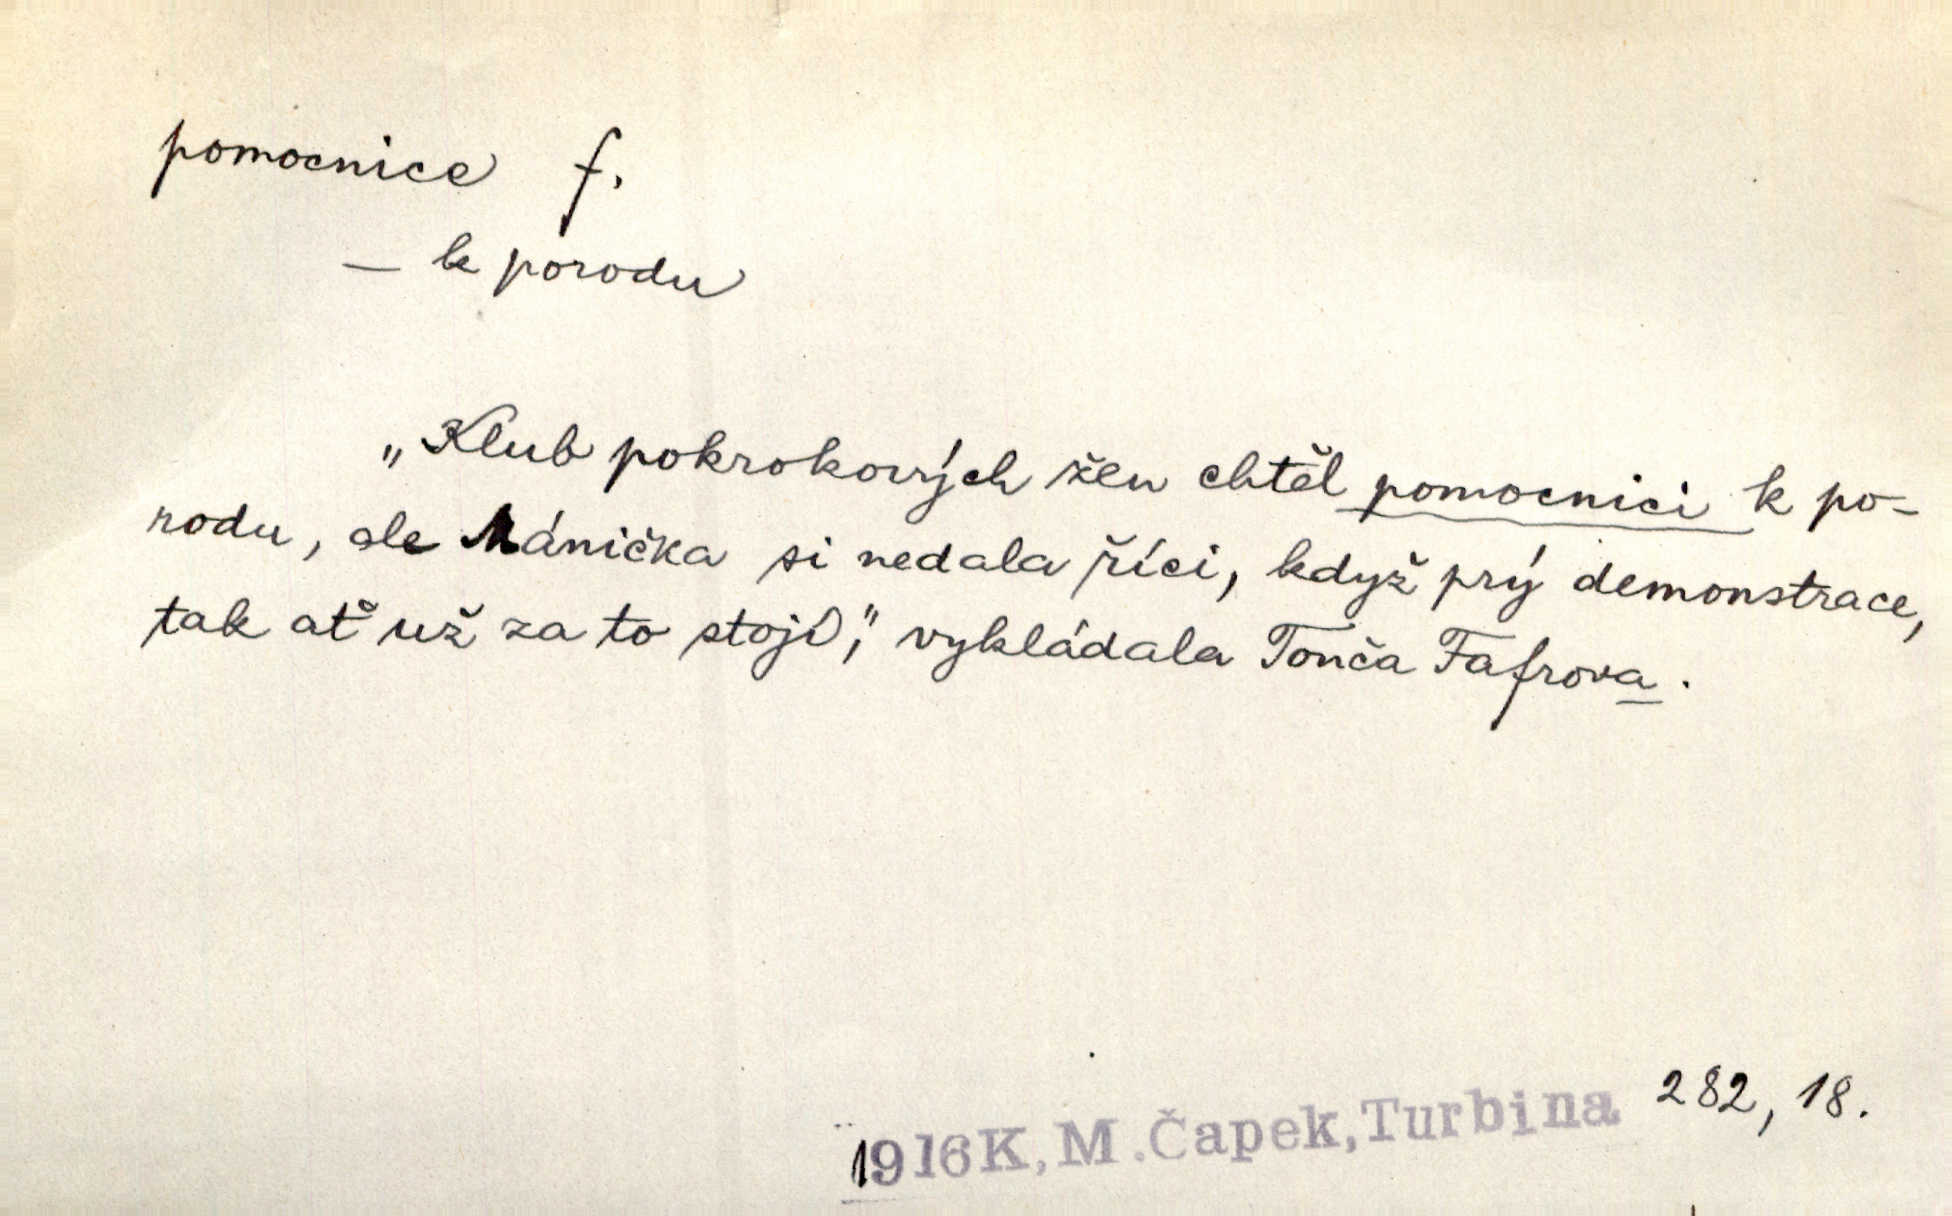 pomocnice f.
— k porodu
„Klub pokrokových žen chtěl pomocnici k po-
rodu, ale Mánička si nedala říci, když prý demonstrace,
tak ať už za to stojí," vykládala Tonča Fafrova.
1916 K, M. Čapek, Turbina 282, 18.